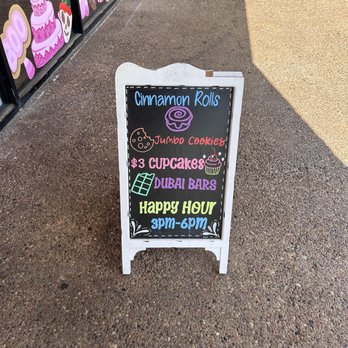 Cinnamon Rolls
Jumbo Cookies
$3 CUPCAKES
DUBAI BARS
HAPPY HOUR
3PM-6PM